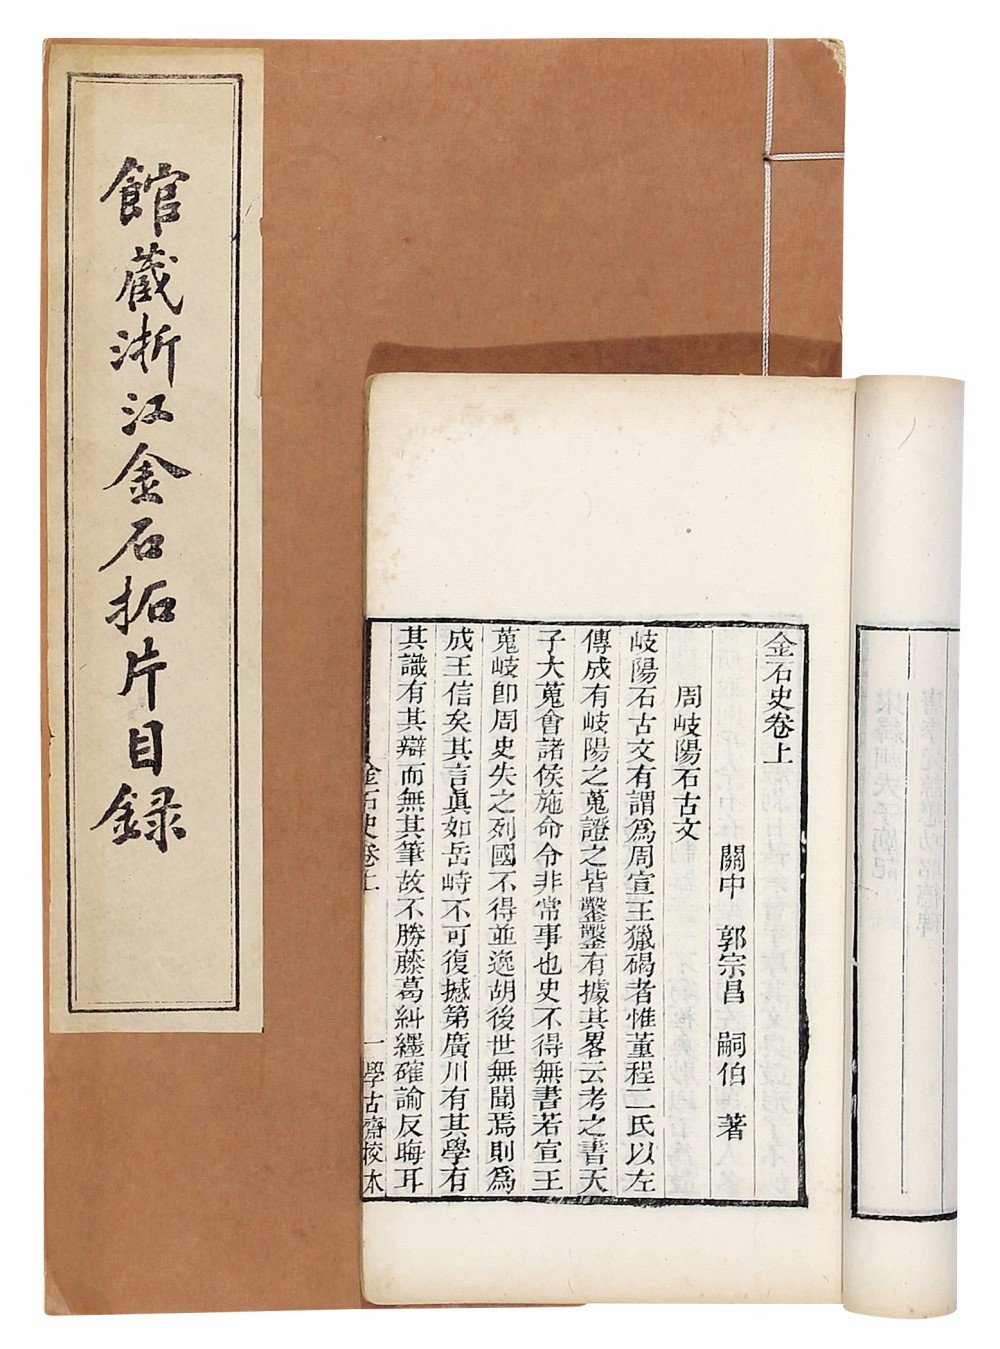 館藏浙江金石拓片目録
金石史卷上
關中 郭宗昌 嗣伯 著
周岐陽石古文
岐陽石古文有謂爲周宣王獵碣者惟董程二氏以左
傳成有岐陽之蒐證之皆鑿鑿有據其畧云考之書天
子大蒐會諸侯施命令非常事也史不得無書若宣王
蒐岐卽周史失之列國不得並逸胡後世無聞焉則爲
成王信矣其言眞如岳峙不可復撼第廣川有其學有
其識有其辯而無其筆故不勝藤葛糾纆確諭反晦耳
金石史卷上 一 學古齋校本